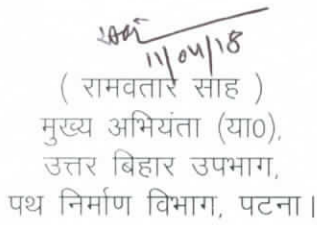 11/04/18
( रामवतार साह )
मुख्य अभियंता (या0),
उत्तर बिहार उपभाग,
पथ निर्माण विभाग, पटना।